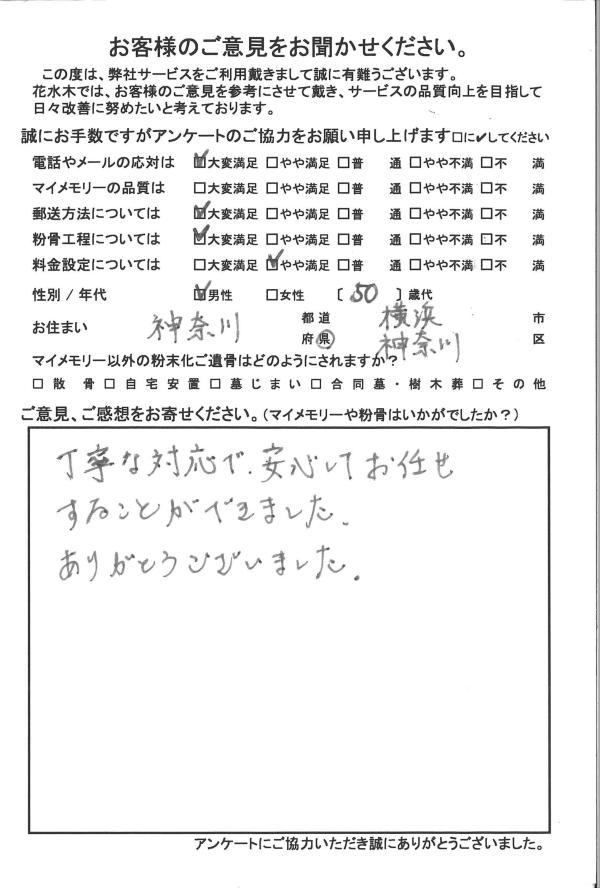 お客様のご意見をお聞かせください。
この度は、弊社サービスをご利用戴きまして誠に有難うございます。
花水木では、お客様のご意見を参考にさせて戴き、サービスの品質向上を目指して
日々改善に努めたいと考えております。
誠にお手数ですがアンケートのご協力をお願い申し上げます□に✔してください
電話やメールの応対は ☑大変満足 □やや満足 □普 通 □やや不満 □不 満
マイメモリーの品質は □大変満足 □やや満足 □普 通 □やや不満 □不 満
郵送方法については ☑大変満足 □やや満足 □普 通 □やや不満 □不 満
粉骨工程については ☑大変満足 □やや満足 □普 通 □やや不満 □不 満
料金設定については □大変満足 ☑やや満足 □普 通 □やや不満 □不 満
性別 / 年代 ☑男性 □女性 〔 50 〕歳代
お住まい 神奈川 都 道 府 県 横浜 市 神奈川 区
マイメモリー以外の粉末化ご遺骨はどのようにされますか?
□散 骨 □自宅安置 □墓じまい □合同墓・樹木葬 □その他
ご意見、ご感想をお寄せください。(マイメモリーや粉骨はいかがでしたか?)
丁寧な対応で、安心してお任せ
することができました。
ありがとうございました。
アンケートにご協力いただき誠にありがとうございました。